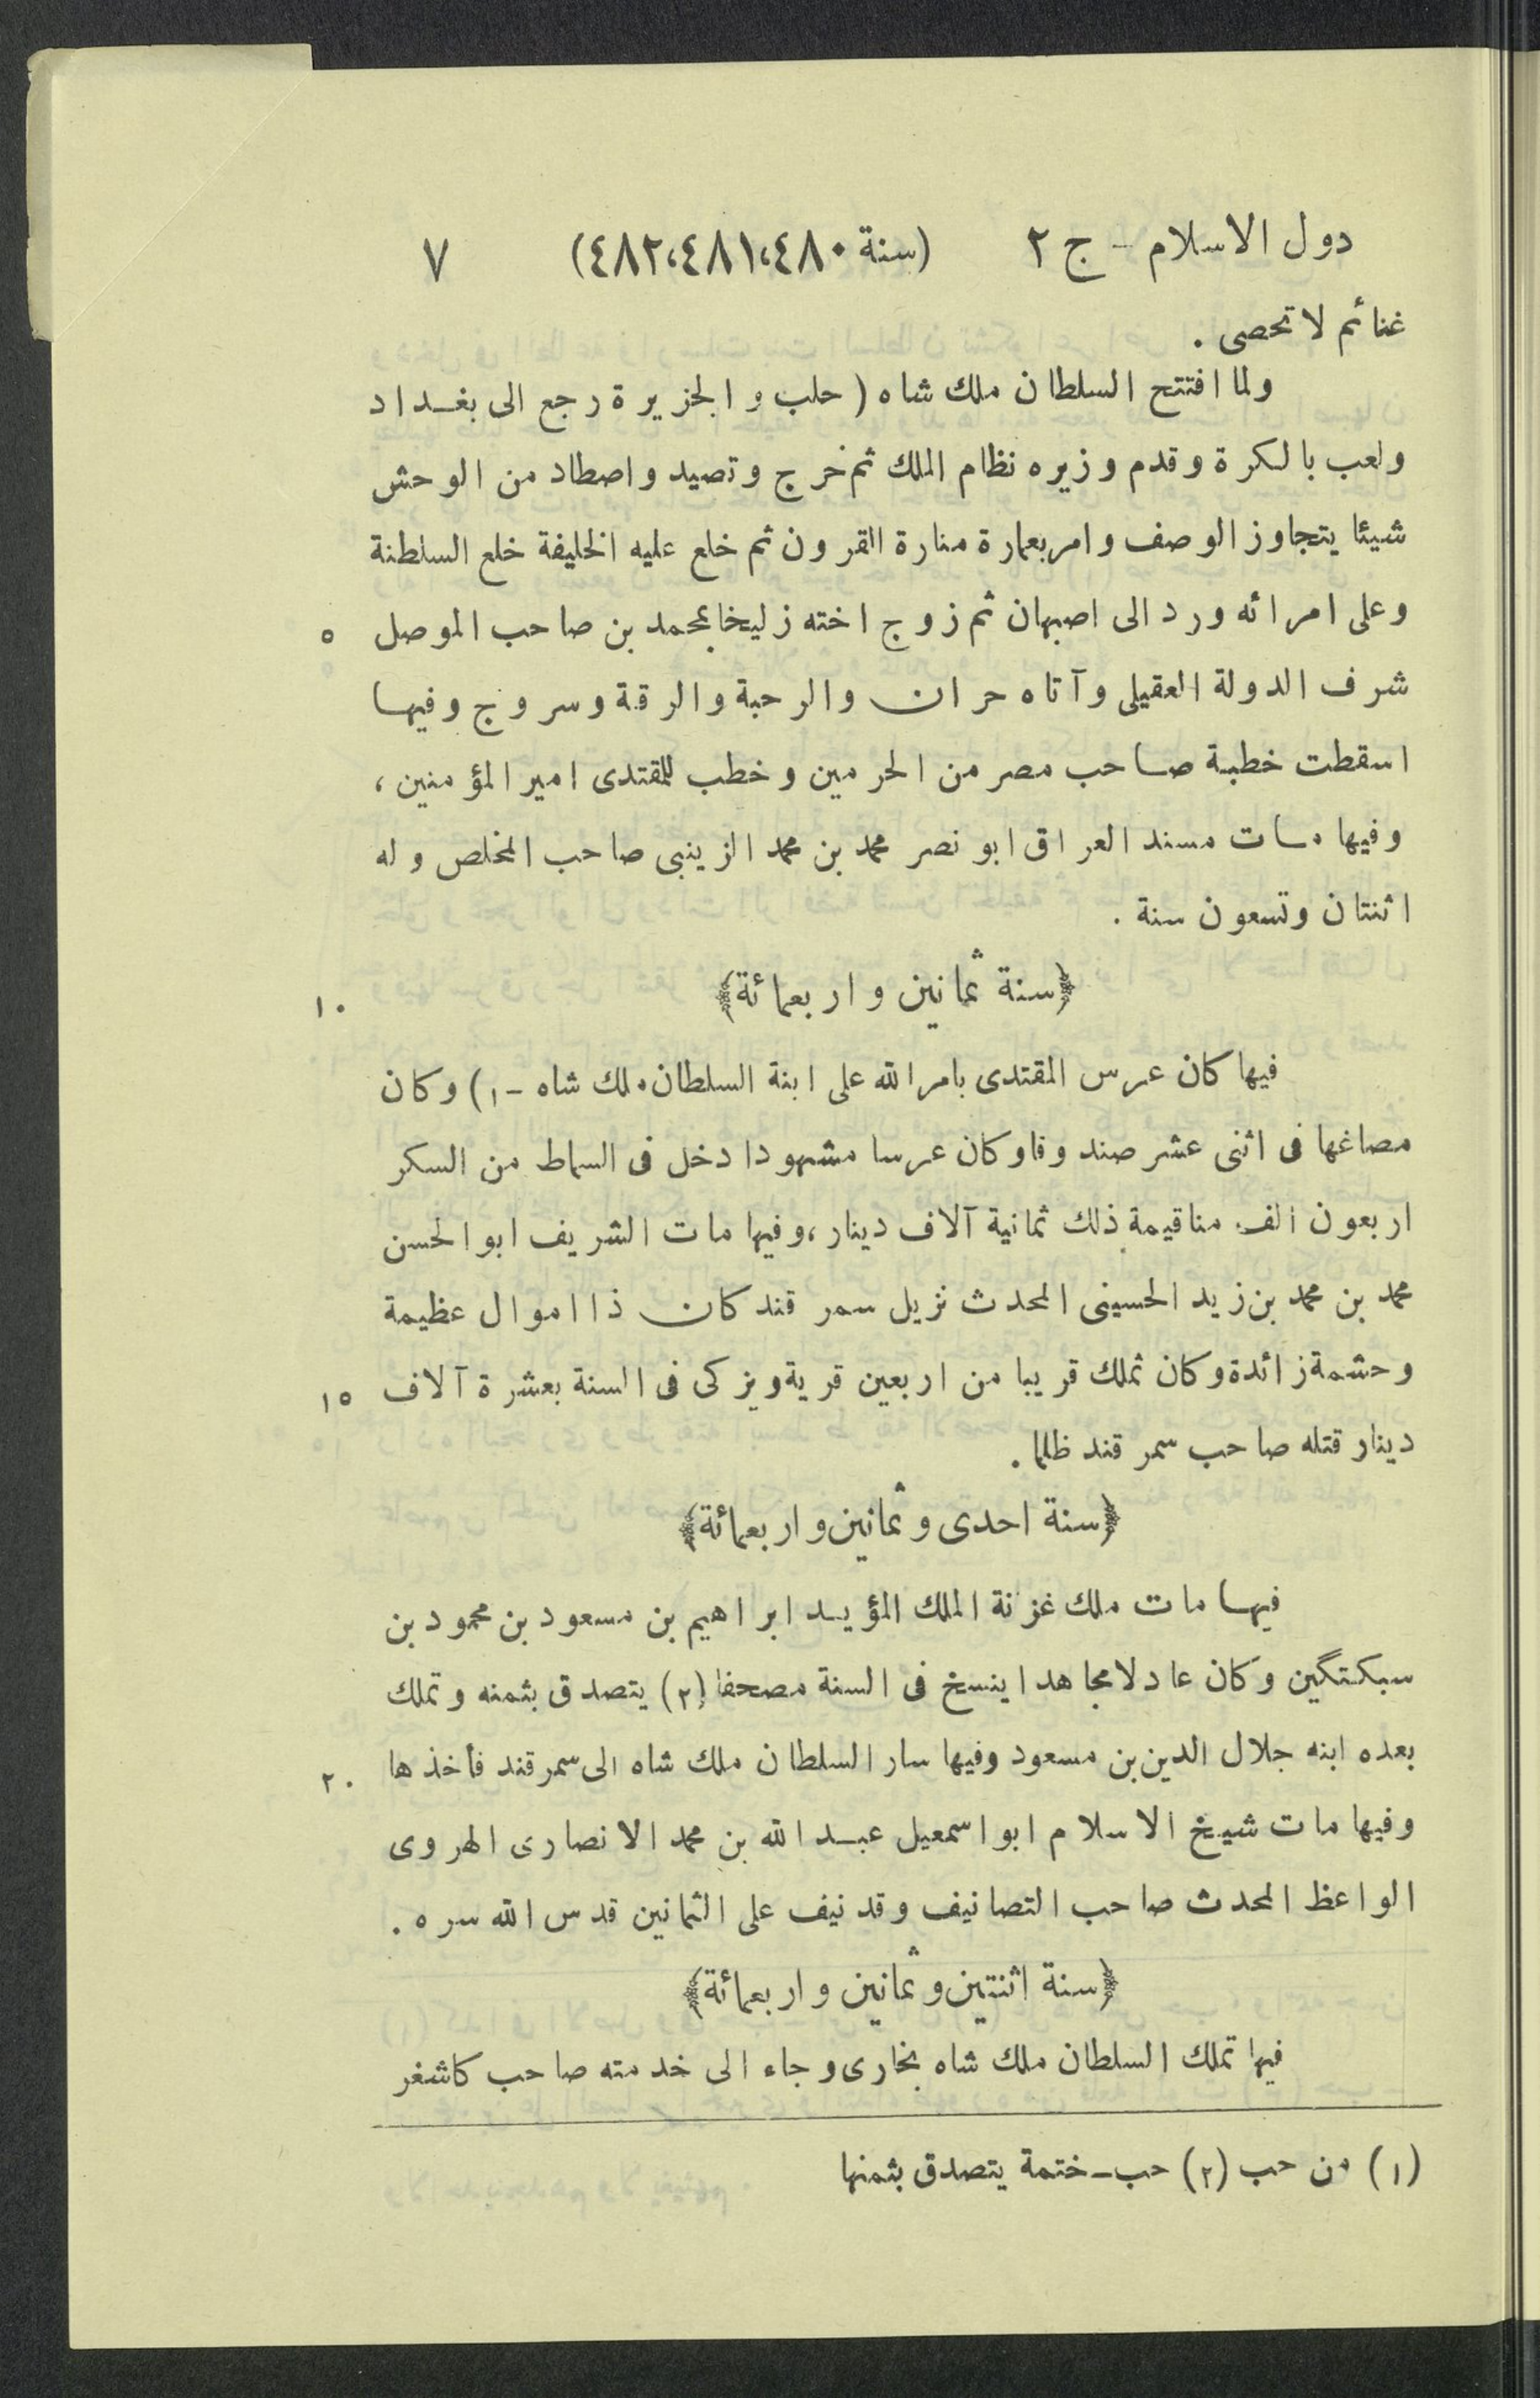 دول الاسلام - ج ٢ (سنة ٤٨٠،٤٨١،٤٨٢) ٧
غنائم لا تحصى .
ولما افتتح السلطان ملك شاه ( حلب و الجزيرة رجع الى بغداد
ولعب بالكرة وقدم وزيره نظام الملك ثم خرج وتصيد واصطاد من الوحش
شيئا يتجاوز الوصف وامر بعمارة منارة القرون ثم خلع عليه الخليفة خلع السلطنة
وعلى امرائه ورد الى اصبهان ثم زوج اخته زليخا بمحمد بن صاحب الموصل ٥
شرف الدولة العقيلى وآتاه حران والرحبة والرقة وسروج وفيها
اسقطت خطبة صاحب مصر من الحرمين وخطب للمقتدى امير المؤمنين ،
وفيها مات مسند العراق ابو نصر محمد بن محمد الزينبى صاحب المخلص وله
اثنتان وتسعون سنة .
﴿سنة ثمانين واربعمائة﴾ ١٠
فيها كان عرس المقتدى بامر الله على ابنة السلطان ملك شاه - ١) وكان
مصاغها فى اثنى عشر صندوقا وكان عرسا مشهودا دخل فى السماط من السكر
اربعون الف منا قيمة ذلك ثمانية آلاف دينار ، وفيها مات الشريف ابو الحسن
محمد بن محمد بن زيد الحسينى المحدث نزيل سمرقند كان ذا اموال عظيمة
وحشمة زائدة وكان تملك قريبا من اربعين قرية ويزكى فى السنة بعشرة آلاف ١٥
دينار قتله صاحب سمرقند ظلما .
﴿سنة احدى وثمانين واربعمائة﴾
فيها مات ملك غزنة الملك المؤيد ابراهيم بن مسعود بن محمود بن
سبكتگين وكان عادلا مجاهدا ينسخ فى السنة مصحفا (٢) يتصدق بثمنه وتملك
بعده ابنه جلال الدين بن مسعود وفيها سار السلطان ملك شاه الى سمرقند فأخذها ٢٠
وفيها مات شيخ الاسلام ابو اسمعيل عبد الله بن محمد الانصارى الهروى
الواعظ المحدث صاحب التصانيف وقد نيف على الثمانين قدس الله سره .
﴿سنة اثنتين وثمانين واربعمائة﴾
فيها تملك السلطان ملك شاه بخارى وجاء الى خدمته صاحب كاشغر
(١) من حب (٢) حب - ختمة يتصدق بثمنها